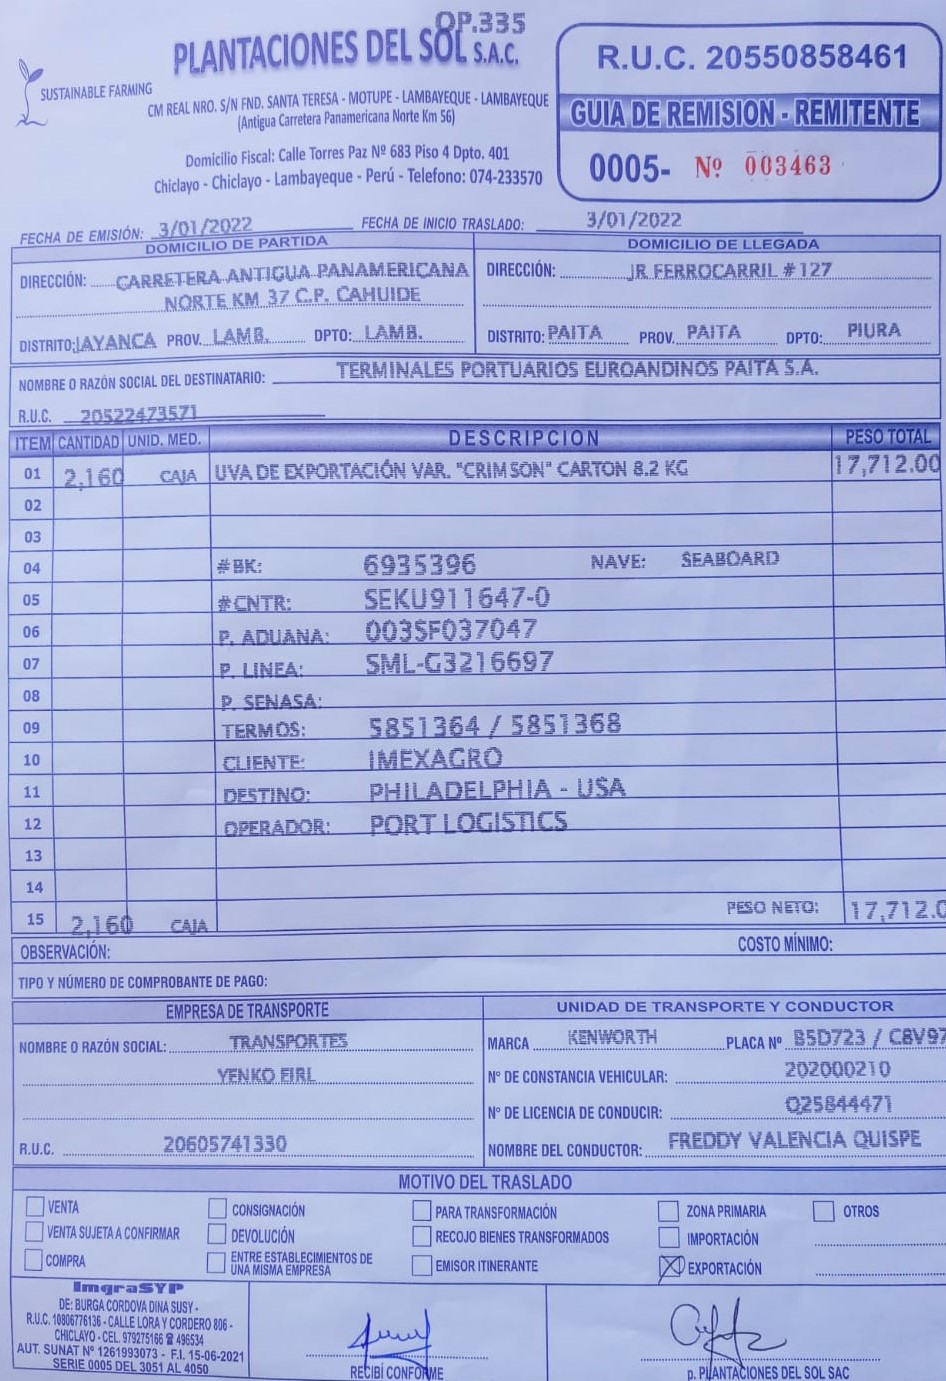 OP.335
PLANTACIONES DEL SOL S.A.C.
SUSTAINABLE FARMING
CM REAL NRO. S/N FND. SANTA TERESA - MOTUPE - LAMBAYEQUE - LAMBAYEQUE
(Antigua Carretera Panamericana Norte Km 56)
Domicilio Fiscal: Calle Torres Paz Nº 683 Piso 4 Dpto. 401
Chiclayo - Chiclayo - Lambayeque - Perú - Telefono: 074-233570
R.U.C. 20550858461
GUIA DE REMISION - REMITENTE
0005- Nº 003463
FECHA DE EMISIÓN: 3/01/2022 FECHA DE INICIO TRASLADO: 3/01/2022
DOMICILIO DE PARTIDA
DIRECCIÓN: CARRETERA ANTIGUA PANAMERICANA
NORTE KM 37 C.P. CAHUIDE
DISTRITO: JAYANCA PROV. LAMB. DPTO: LAMB.
DOMICILIO DE LLEGADA
DIRECCIÓN: JR FERROCARRIL #127
DISTRITO: PAITA PROV. PAITA DPTO: PIURA
NOMBRE O RAZÓN SOCIAL DEL DESTINATARIO: TERMINALES PORTUARIOS EUROANDINOS PAITA S.A.
R.U.C. 20522473571
ITEM CANTIDAD UNID. MED. DESCRIPCION PESO TOTAL
01 2,160 CAJA UVA DE EXPORTACIÓN VAR. "CRIMSON" CARTON 8.2 KG 17,712.00
02
03
04 #BK: 6935396 NAVE: SEABOARD
05 #CNTR: SEKU911647-0
06 P. ADUANA: 003SF037047
07 P. LINEA: SML-G3216697
08 P. SENASA:
09 TERMOS: 5851364 / 5851368
10 CLIENTE: IMEXAGRO
11 DESTINO: PHILADELPHIA - USA
12 OPERADOR: PORT LOGISTICS
13
14
15 2,160 CAJA PESO NETO: 17,712.0
OBSERVACIÓN: COSTO MÍNIMO:
TIPO Y NÚMERO DE COMPROBANTE DE PAGO:
EMPRESA DE TRANSPORTE
NOMBRE O RAZÓN SOCIAL: TRANSPORTES
YENKO EIRL
R.U.C. 20605741330
UNIDAD DE TRANSPORTE Y CONDUCTOR
MARCA KENWORTH PLACA Nº B5D723 / C8V97
Nº DE CONSTANCIA VEHICULAR: 202000210
Nº DE LICENCIA DE CONDUCIR: Q25844471
NOMBRE DEL CONDUCTOR: FREDDY VALENCIA QUISPE
MOTIVO DEL TRASLADO
VENTA CONSIGNACIÓN PARA TRANSFORMACIÓN ZONA PRIMARIA OTROS
VENTA SUJETA A CONFIRMAR DEVOLUCIÓN RECOJO BIENES TRANSFORMADOS IMPORTACIÓN
COMPRA ENTRE ESTABLECIMIENTOS DE UNA MISMA EMPRESA EMISOR ITINERANTE EXPORTACIÓN
ImgraSYP
DE: BURGA CORDOVA DINA SUSY -
R.U.C. 10806776136 - CALLE LORA Y CORDERO 806 -
CHICLAYO - CEL. 979275166 ☎ 496534
AUT. SUNAT Nº 1261993073 - F.I. 15-06-2021
SERIE 0005 DEL 3051 AL 4050
RECIBÍ CONFORME
p. PLANTACIONES DEL SOL SAC